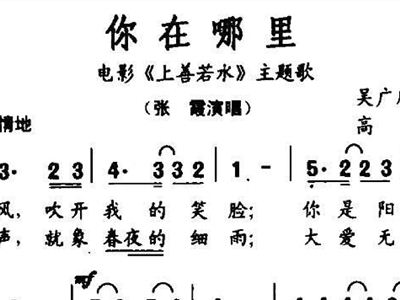 你在哪里
电影《上善若水》主题歌
（张 霞演唱）
吴广
情地
高
3· 2 3 | 4· 3 3 2 | 1 - | 5· 2 2 2
风，吹开我的笑脸； 你是阳
声，就象春夜的细雨； 大爱无
mf